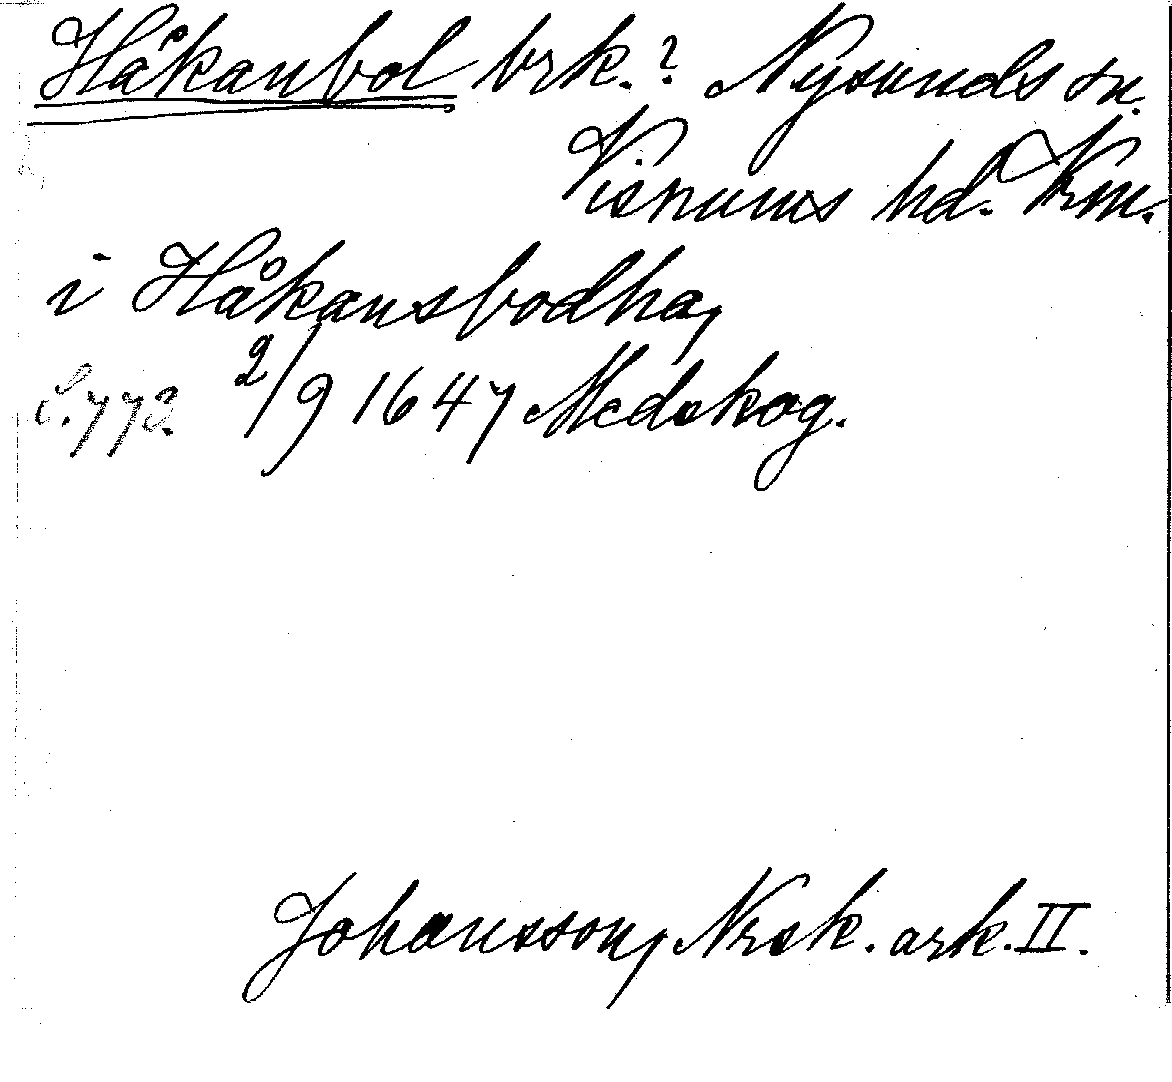 Håkanbol brk.? Nysunds sn.
Visnums hd. Vrm.
i Håkansbodha,
s. 773. 2/9 1647 Medskog.
Johansson, Nrsk. ark. II.